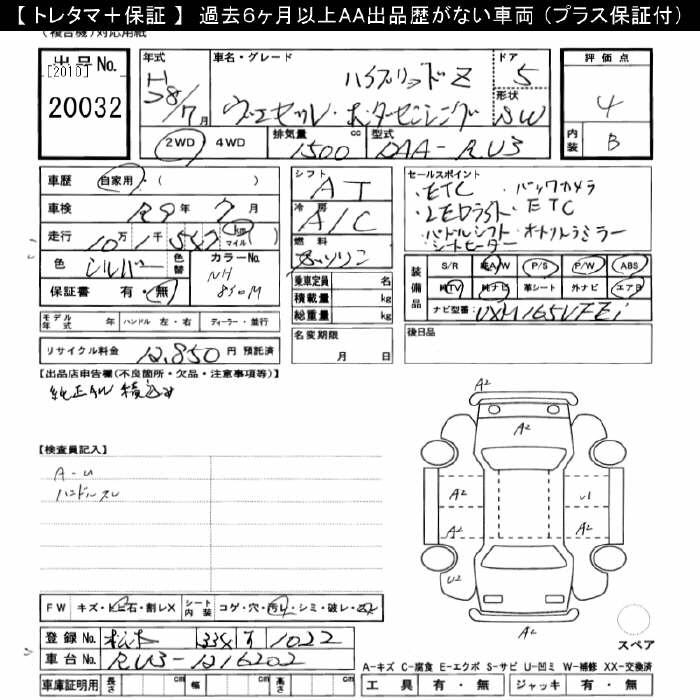 【 トレタマ＋保証 】 過去６ヶ月以上ＡＡ出品歴がない車両（プラス保証付）
(複合機)対応用紙
出品No. [2010] 20032
年式 H 28/7月
車名・グレード ハイブリッドZ
ヴェゼル・ホンダセンシング
ドア 5
形状 SW
評価点 4
内装 B
2WD 4WD 排気量 1500 cc 型式 DAA-RU3
車歴 自家用・(
車検 R9年7月
走行 10万1千547 km マイル
色 シルバー 色替 カラーNo. NH 830M
保証書 有・無
シフト AT
冷房 A/C
燃料 ガソリン
乗車定員 名
積載量 kg
総重量 kg
セールスポイント
・ETC ・バックカメラ
・LEDライト・ETC
・パドルシフト・オートリトラミラー
・シートヒーター
装備品 S/R 純A/W P/S P/W ABS
純TV 純ナビ 革シート 外ナビ エア B
ナビ型番: VXM165VFEi
モデル年式 年 ハンドル 左・右 ディーラー・並行
名変期限 月 日
後日品
リサイクル料金 12,850 円 預託済
【出品店申告欄(不良箇所・欠品・注意事項等)】
純正AW 積込み
【検査員記入】
A-U
ハンドルスレ
A2
A2
A2
U1
A2
A2
U2
A2
FW キズ・トビ石・割レX シート内装 コゲ・穴・汚レ・シミ・破レ・スレ
登録No. 松本 338 す 1022
車台No. RU3-1216202
スペア
A-キズ C-腐食 E-エクボ S-サビ U-凹ミ W-補修 XX-交換済
車庫証明用 長さ cm 幅 cm 高さ cm
工具 有・無 ジャッキ 有・無